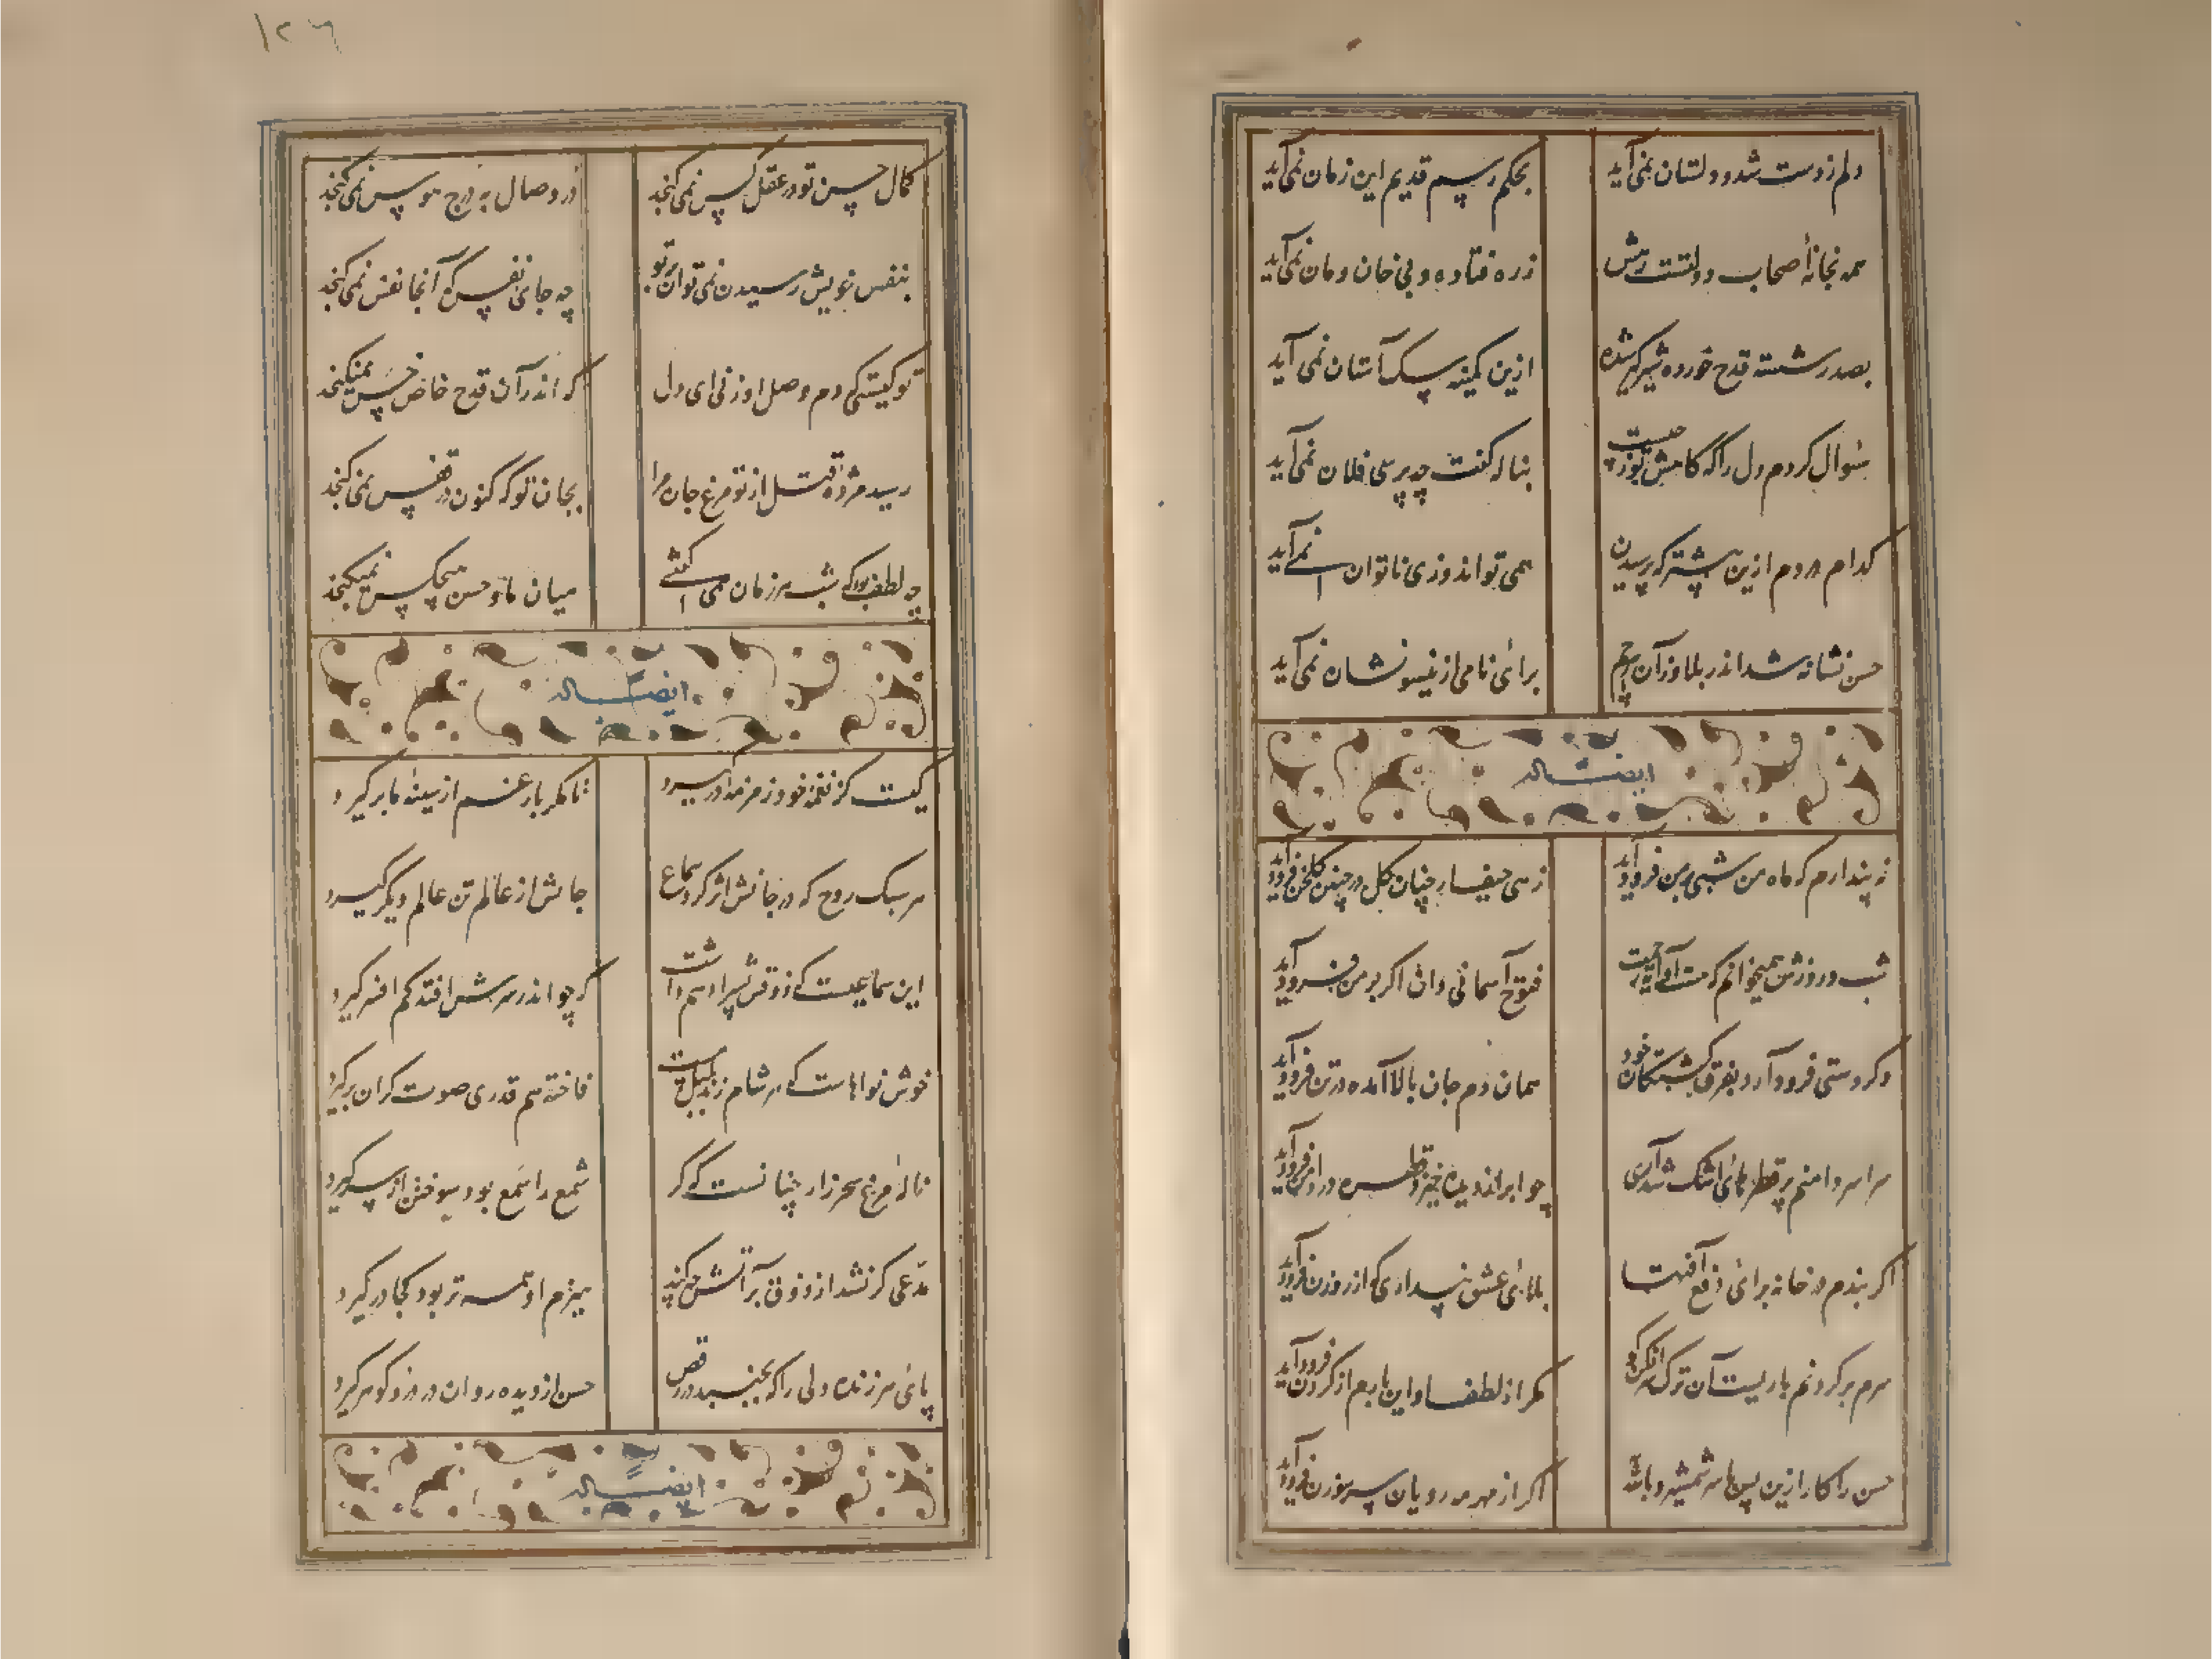 دلم ز دست شد و دلستان نمی‌آید
بحکم رسم قدیم این زمان نمی‌آید
همه بخانهٔ اصحاب دولتست رهش
ز ره فتاده و بی خان و مان نمی‌آید
بصدر شسته قدح خورده شیر گیر شده
ازین کمینه سگ آستان نمی آید
سؤال کردم دل را که کامش چیست
بناله گفت چه پرسی فلان نمی‌آید
کدام دردم ازین بیشتر که پرسیدن
همی تواند و زی ناتوان نمی‌آید
حسن نشانه شد اندر بلا وزآن
برای نامی ازین سو نشان نمی‌آید
ایضاً له
نه پندارم که ماه من شبی بر من فرود آید
زهی حیف ار چنان گل در چنین گلخن فرود آید
شب و روزش همیخوانم که هست آیت رحمت
فتوح آسمانی دان اگر بر من فرود آید
وگر دستی فرود آرد بفرق کشتگان خود
همان دم جان بالا آمده در تن فرود آید
سراسر دامنم پر قطرهای اشک شد آری
چو ابر از دیده خیزد قطره در دامن فرود آید
اگر بندم در خانه برای دفع آفتها
بلای عشق پنداری که از روزن فرود آید
سرم بر گردنم باریست آن ترک
مگر از لطف او این بارم از گردن فرود آید
حسن را کار ازین پس با سر شمشیر و بالله
اگر از مهر مه رویان سر سوزن فرود آید
۱۲۶
کمال حسن تو در عقل کس نمی گنجد
در وصال به درج هوس نمی گنجد
بنفس خویش رسیدن نمی توان بر تو
چه جای نفس که آنجا نفس نمی گنجد
تو کیستی که دم وصل او زنی ای دل
که اندر آن قدح خاص خس نمیگنجد
رسید مژدهٔ قتل از تو مرغ جان مرا
بجان تو که کنون در قفس نمی گنجد
چه لطف بود که شب هر زمان همی گفتی
میان ما و حسن هیچکس نمیگنجد
ایضاً له
کیست کز نغمهٔ خود زمزمه‌ای در گیرد
تا مگر بار غم از سینهٔ ما بر گیرد
هر سبک روح که در جانش اثر کرد سماع
جانش از عالم تن عالم دیگر گیرد
این سماعیست که ذوقش پسر ادهم داشت
کر چو اندر سرش افتد کم افسر گیرد
خوش نواهاست که هر شام زند بلبل مست
فاخته هم قدری صوت گران بر گیرد
نالهٔ مرغ سحر زار چنانست که گر
شمع را سمع بود سوختن از سر گیرد
مدعی گر نشد از ذوق بر آتش چه کند
هیزم او همه تر بود کجا در گیرد
پای هر زنده دلی را که بجنبید در رقص
حسن از دیده روان در در و گوهر گیرد
ایضاً له